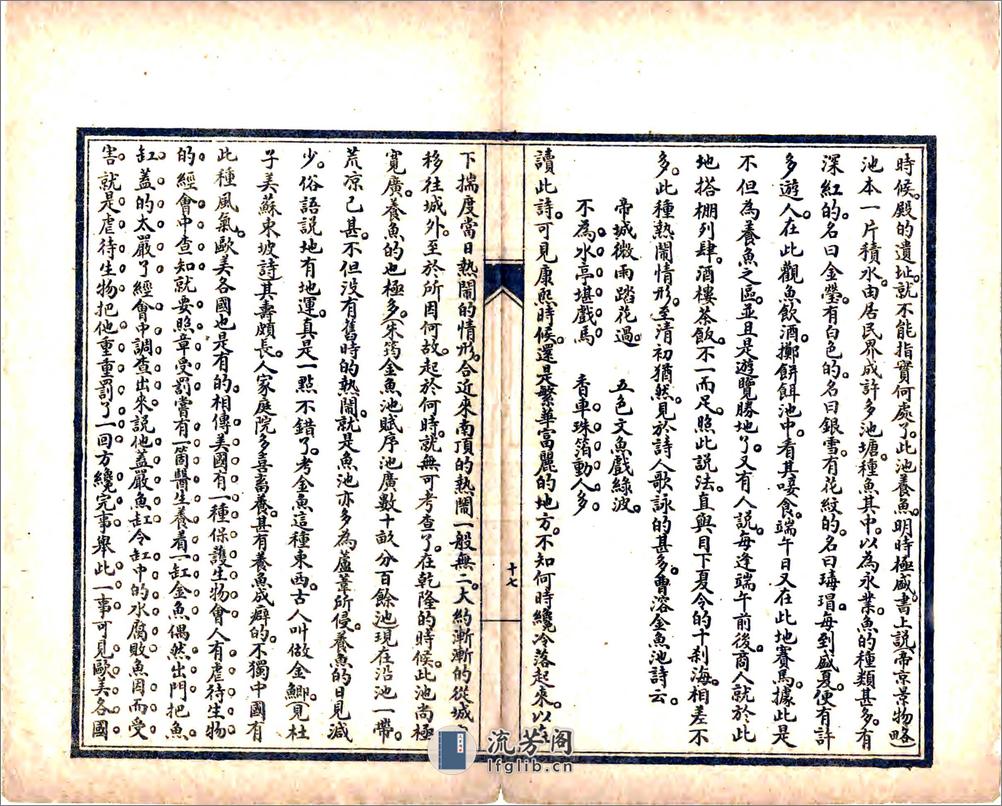 時候。殿的遺址。就不能指實何處了。此池養魚。明時極盛。書上說。（帝京景物略）
池本一片積水。由居民界成許多池塘。種魚其中。以為永業。魚的種類甚多。有
深紅的。名曰金瑩。有白色的。名曰銀雪。有花紋的。名曰瑇瑁。每到盛夏。便有許
多遊人。在此觀魚飲酒。擲餅餌池中。看其唼食。端午日又在此地賽馬。據此是
不但為養魚之區。並且是遊覽勝地了。又有人說。每逢端午前後。商人就於此
地搭棚列肆。酒樓茶飯。不一而足。照此說法。直與目下夏令的十刹海。相差不
多。此種熱鬧情形。至清初猶然。見於詩人歌詠的甚多。曹溶金魚池詩云。
帝城微雨踏花過。　五色文魚戲綠波。
不為水亭堪戲馬　香車珠箔動人多
讀此詩可見康熙時候。還是繁華富麗的地方。不知何時纔冷落起來。以在
十七
下揣度當日熱鬧的情形。合近來南頂的熱鬧一般無二。大約漸漸的從城
移往城外。至於所因何故。起於何時。就無可考查了。在乾隆的時候。此池尚極
寬廣。養魚的也極多。宋筠金魚池賦序。池廣數十畝。分百餘池。現在沿池一帶。
荒凉已甚。不但没有舊時的熱鬧。就是魚池亦多為蘆葦所侵。養魚的日見減
少。俗語說地有地運。真是一點不錯了。考金魚這種東西。古人叫做金鯽。見杜
子美蘇東坡詩。其壽頗長。人家庭院。多喜畜養。甚有養魚成癖的。不獨中國有
此種風氣。歐美各國也是有的。相傳美國有一種保護生物會。人有虐待生物
的。經會中查知。就要照章受罰。嘗有一箇醫生。養着一缸金魚。偶然出門。把魚
缸蓋的太嚴了。經會中調查出來。說他蓋嚴魚缸。令缸中的水腐敗。魚因而受
害。就是虐待生物。把他重重罰了一回。方纔完事。舉此一事。可見歐美各國
流芳阁
lfglib.cn